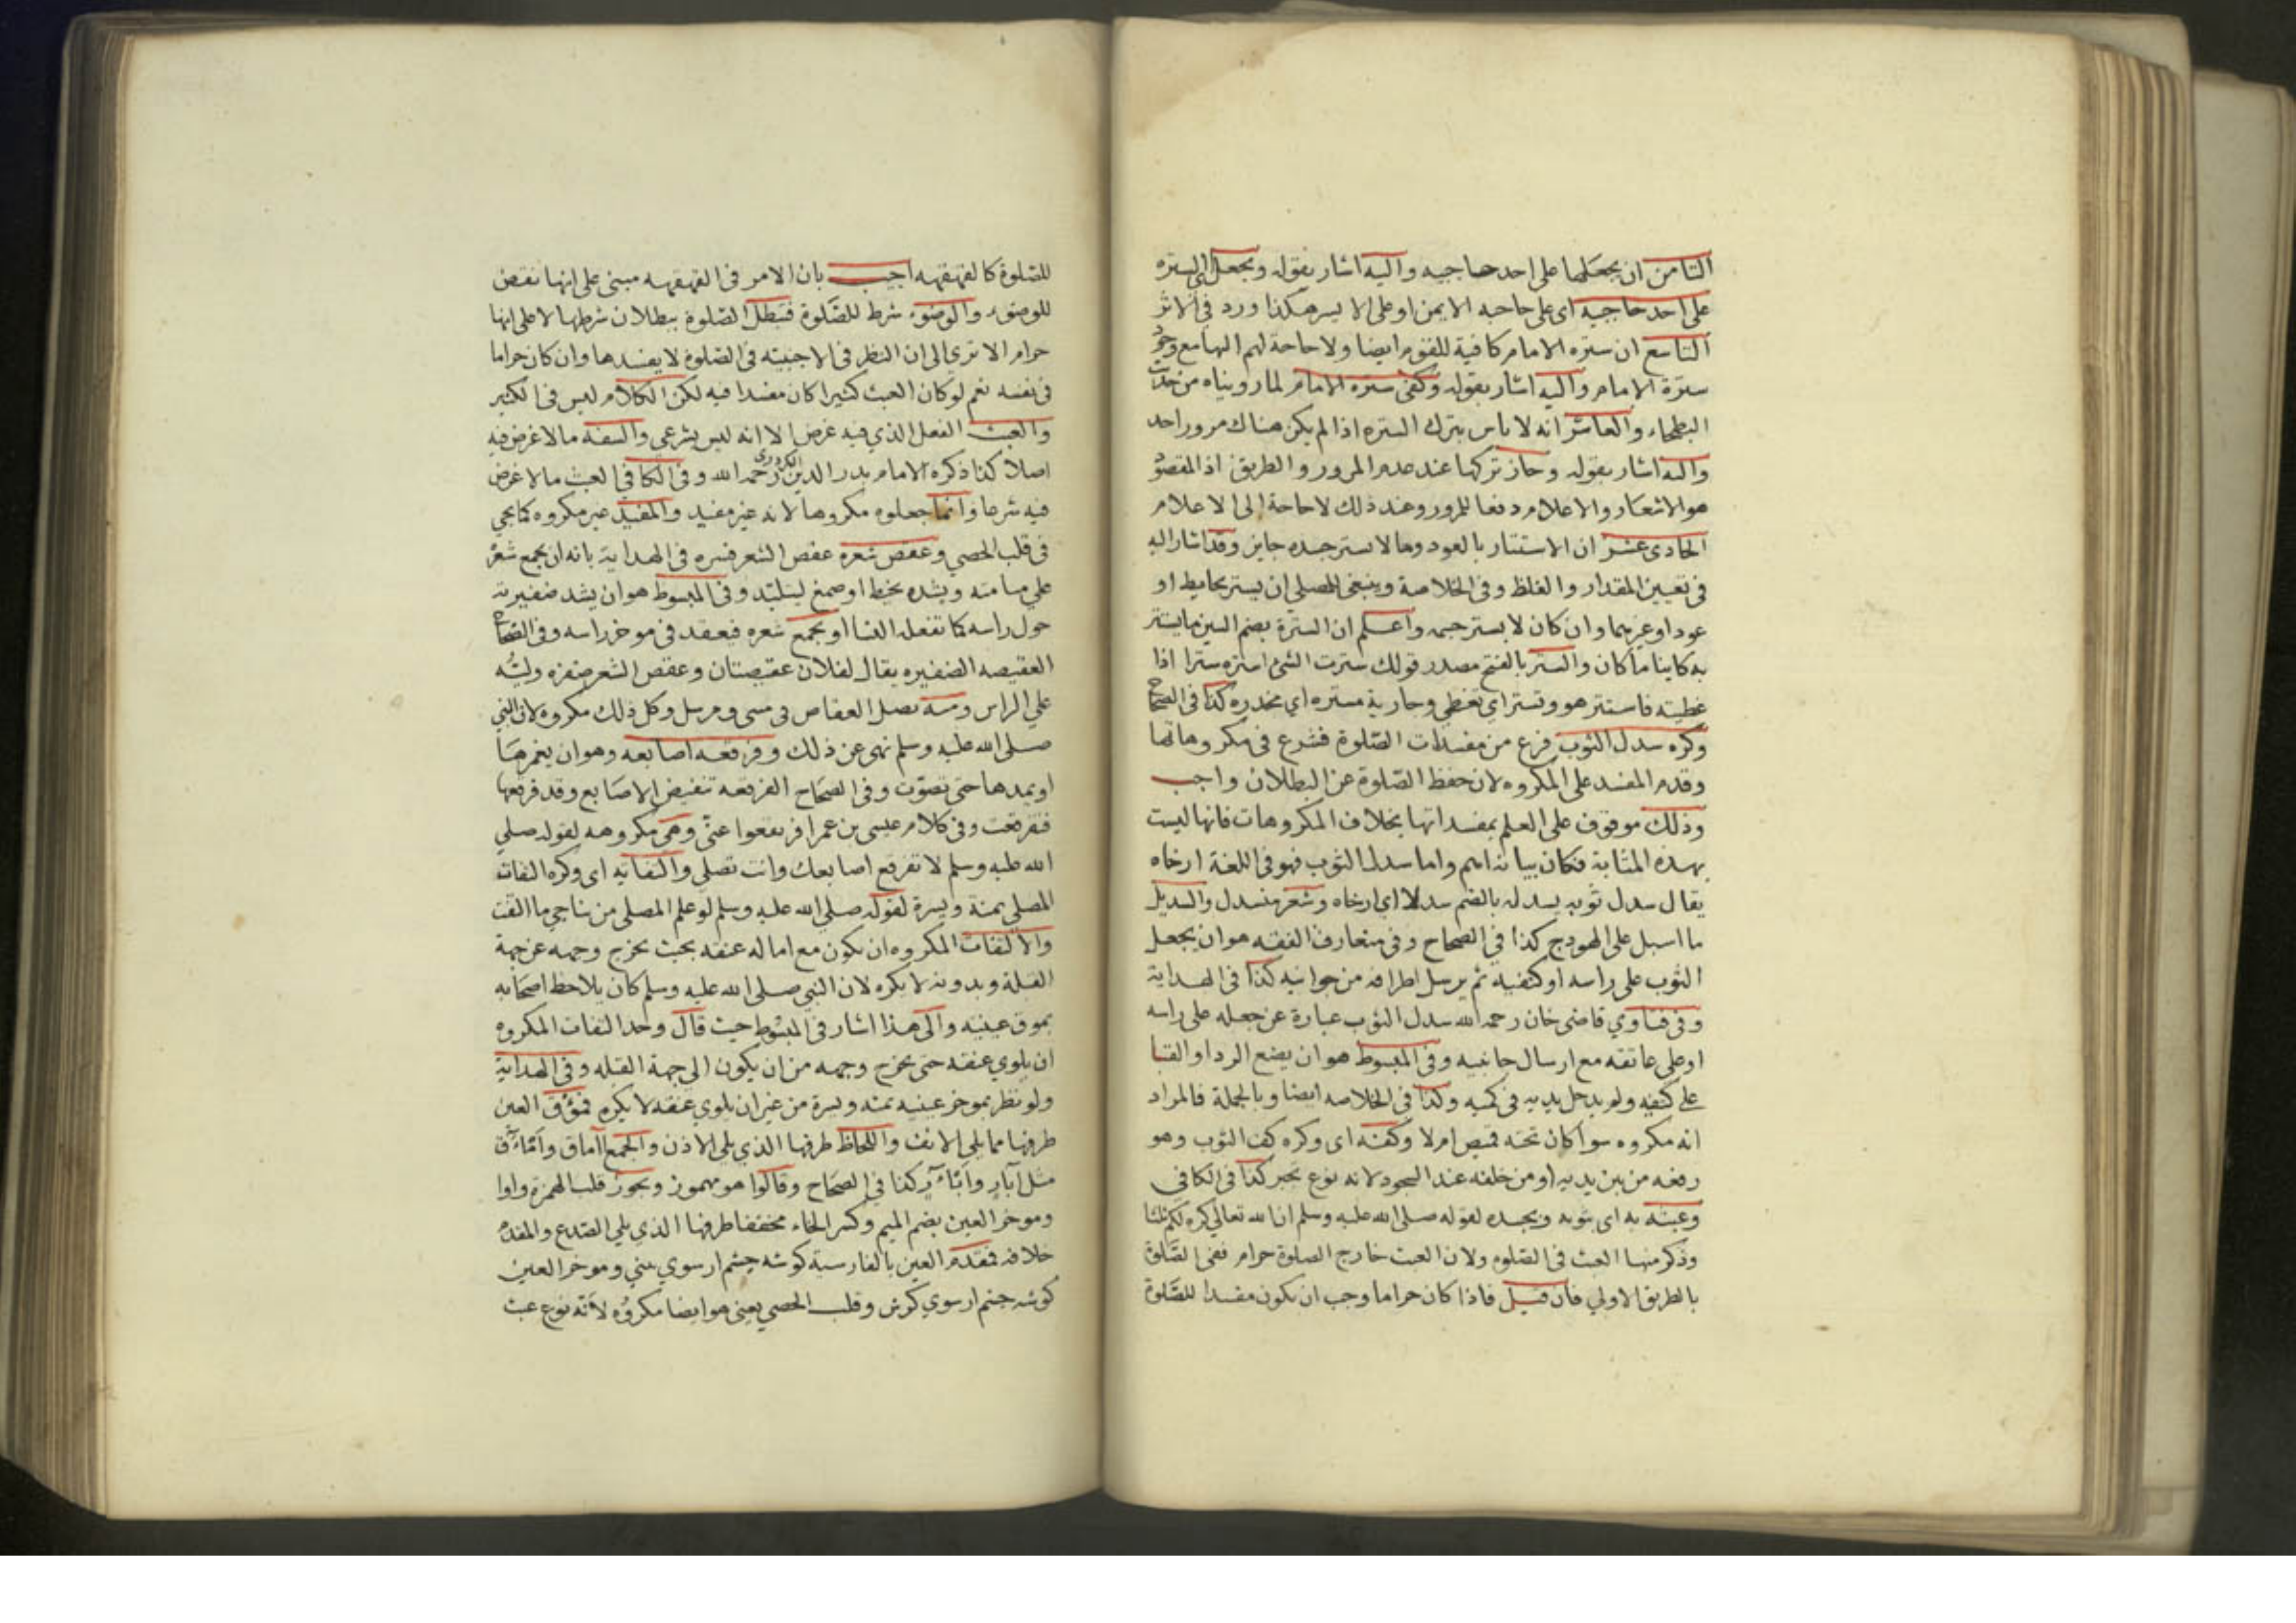 الثامن ان يجعلها على احد حاجبيه واليه اشار بقوله ويجعل السترة
على احد حاجبيه اى على حاجبه الايمن او على الايسر هكذا ورد في الاثر
التاسع ان سترة الامام كافية للقوم ايضا ولا حاجة لهم اليها مع وجود
سترة الامام واليه اشار بقوله وكفى سترة الامام لما رويناه من حديث
البطحاء والعاشر انه لا باس بترك السترة اذا لم يكن هناك مرور احد
واليه اشار بقوله وجاز تركها عند عدم المرور والطريق اذ المقصود
هو الاشعار والاعلام دفعا للمرور وعند ذلك لا حاجة الى الاعلام
الحادى عشر ان الاستتار بالعود وما لا يستر جسده جايز وقد اشار اليه
فى تعيين المقدار والغلظ وفى الخلاصة وينبغى للمصلى ان يستتر بحايط او
عود او غيرهما وان كان لا يستر جسمه واعلم ان السترة بضم السين ما يستتر
به كاينا ما كان والستر بالفتح مصدر قولك سترت الشئ استره سترا اذا
غطيته فاستتر هو وتستر اي تغطى وجارية مستره اي مخدره كذا فى الصحاح
وكره سدل الثوب فرغ من مفسدات الصّلوة فشرع فى مكروهاتها
وقدم المفسد على المكروه لان حفظ الصّلوة عن البطلان واجب
وذلك موقوف على العلم بمفسداتها بخلاف المكروهات فانها ليست
بهذه المثابة فكان بيانه اهم واما سدل الثوب فهو فى اللغة ارخاه
يقال سدل ثوبه يسدله بالضم سدلا اى ارخاه وشعر منسدل والسديل
ما اسبل على الهودج كذا فى الصحاح وفى متعارف الفقه هو ان يجعل
الثوب على راسه او كتفيه ثم يرسل اطرافه من جوانبه كذا فى الهداية
وفى فتاوي قاضى خان رحمه الله سدل الثوب عبارة عن جعله على راسه
او على عاتقه مع ارسال جانبيه وفى المبسوط هو ان يضع الردا او القبا
على كتفيه ولم يدخل يديه فى كميه وكذا فى الخلاصه ايضا وبالجملة فالمراد
انه مكروه سوا كان تحته قميص ام لا وكفه اى وكره كف الثوب وهو
رفعه من بين يديه او من خلفه عند السجود لانه نوع تجبر كذا فى الكافى
وعبثه به اى بثوبه وبجسده لقوله صلى الله عليه وسلم ان الله تعالى كره لكم ثلثا
وذكر منها العبث فى الصّلوه ولان العبث خارج الصلوة حرام ففى الصّلوة
بالطريق الاولي فان قيل فاذا كان حراما وجب ان يكون مفسدا للصّلوة
للصّلوة كالقهقهه اجيب بان الامر فى القهقهه مبنى على انها نقض
للوضوء والوضوء شرط للصَّلوة فتبطل الصّلوة ببطلان شرطها لا على انها
حرام الا ترى الى ان النظر فى الاجنبيه فى الصّلوة لا يفسدها وان كان حراما
فى نفسه نعم لو كان العبث كثيرا كان مفسدا فيه لكن الكلام ليس فى الكثير
والعبث الفعل الذي فيه غرض الا انه ليس بشرعى والسفه ما لا غرض فيه
اصلا كذا ذكره الامام بدر الدين الكردرى رحمه الله وفى الكافى العبث ما لا غرض
فيه شرعا وانما جعلوه مكروها لانه غير مفيد والمفيد غير مكروه كما يجى
فى قلب الحصي وعقص شعره عقص الشعر فسره فى الهداية بانه ان يجمع شعره
على هامته ويشده بخيط او صمغ ليتلبّد وفى المبسوط هو ان يشد ضفيرته
حول راسه كما تفعله النسا او يجمع شعره فيعقد فى موخر راسه وفى الصحاح
العقيصه الضفيره يقال لفلان عقيصتان وعقص الشعر ضفره وليُّه
على الراس ومنه تضل العقاص فى مثنى ومرسل وكل ذلك مكروه لان النبى
صلى الله عليه وسلم نهى عن ذلك وفرقعه اصابعه وهو ان يغمزهَا
او يمدها حتى تصوّت وفى الصحَاح الفرقعه تنقيض الاصَابع وقد فرقعها
فتفرقعت وفى كلام عيسى بن عمر افرنقعوا عنّى وهى مكروهه لقوله صلى
الله عليه وسلم لا تفرقع اصابعك وانت تصلى والتفاته اى وكره التفاته
المصلي يمنة ويسرة لقوله صلى الله عليه وسلم لو علم المصلى من يناجى ما التفت
والالتفات المكروه ان يكون مع اماله عنقه بحيث يخرج وجهه عن جهة
القبلة وبدونه لا يكره لان النبي صلى الله عليه وسلم كان يلاحظ اصحَابه
بموق عينيه والى هذا اشار فى المبسُوط حيث قال وحد التفات المكروه
ان يلوي عنقه حتى يخرج وجهه من ان يكون الى جهة القبله وفى الهداية
ولو نظر بموخر عينيه يمنه ويسرة من غير ان يلوي عنقه لا يكره فمؤق العين
طرفها مما يلى الانف واللحاظ طرفها الذي يلى الاذن والجمع اآماق وامآق
مثل آبار وابآر كذا فى الصحَاح وقالوا هو مهموز ويجوز قلب الهمزة واوا
وموخر العين بضم الميم وكسر الخاء مخففا طرفها الذي يلي الصّدغ والمقدم
خلافه فمقدم العين بالفارسية كوشه چشم ارسوي بينى وموخر العين
كوشه چشم ارسوي كوش وقلب الحصي يعنى هو ايضا مكرُوه لانّه نوع عبث